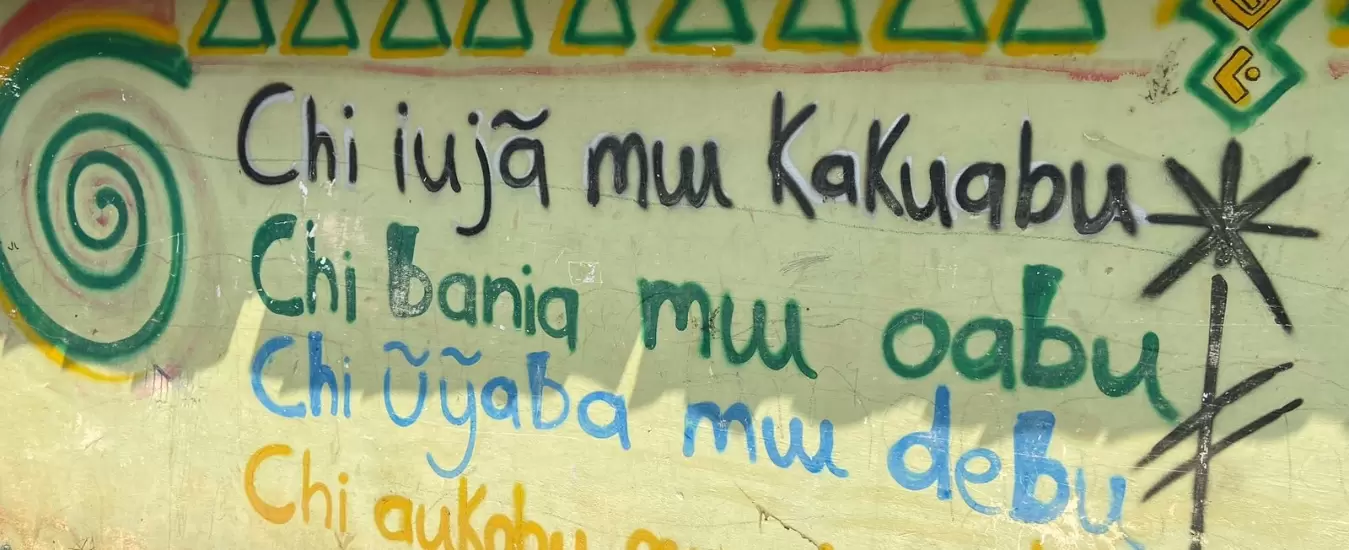 Chi iujã mɯ KaKuabu
Chi bania mɯ oabu
Chi ũỹaba mɯ debu
Chi